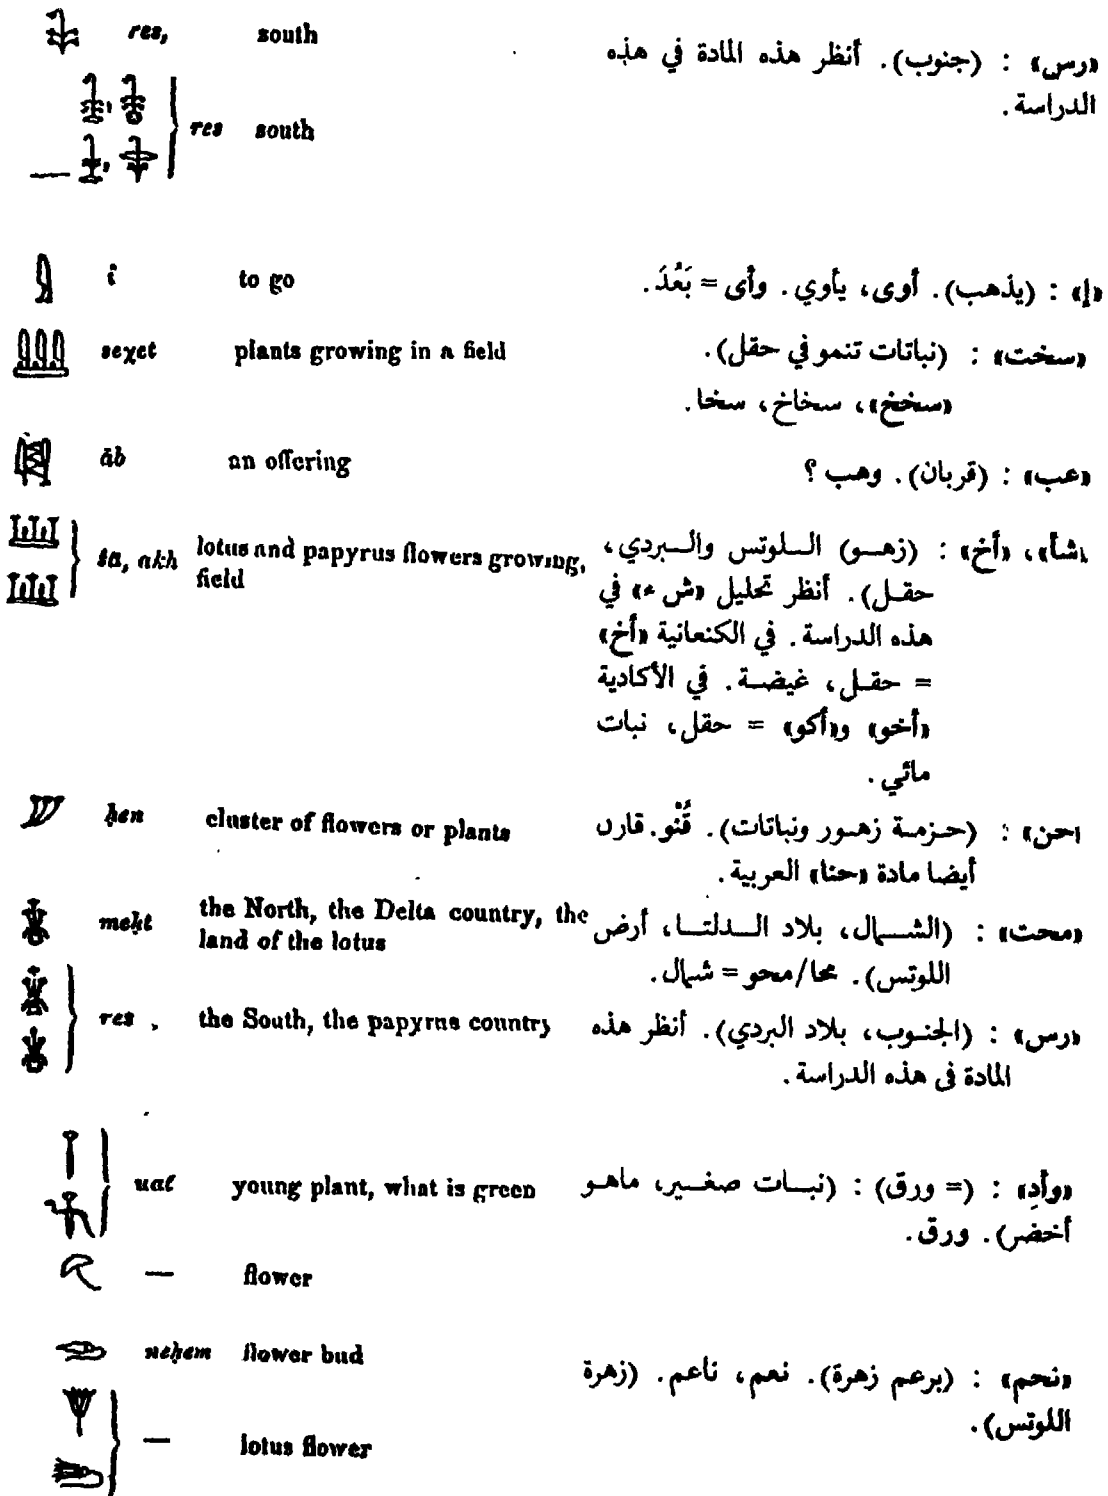 res, south «رس» : (جنوب). أنظر هذه المادة في هذه
الدراسة.
res south
i to go «إ» : (يذهب). أوى، يأوي. وأى = بَعُدَ.
seχet plants growing in a field «سخت» : (نباتات تنمو في حقل).
«سخخ»، سخاخ، سخا.
āb an offering «عب» : (قربان). وهب ؟
šā, akh lotus and papyrus flowers growing, «شأ»، «أخ» : (زهـو) الـلوتس والـبردي،
field حقـل). أنظر تحليل «ش ء» في
هذه الدراسة. في الكنعانية «أخ»
= حقـل، غيضـة. في الأكادية
«أخو» و«أكو» = حقل، نبات
مائي.
ḥen cluster of flowers or plants «حن» : (حـزمـة زهـور ونباتات). قُنْو. قارن
أيضا مادة «حنا» العربية.
meḥt the North, the Delta country, the «محت» : (الشـمال، بلاد الـدلتـا، أرض
land of the lotus اللوتس). محا/محو = شمال.
res the South, the papyrus country «رس» : (الجنـوب، بلاد البردي). أنظر هذه
المادة في هذه الدراسة.
uat young plant, what is green «وأدِ» : (= ورق) : (نبـات صغـير، ماهـو
أخضر). ورق.
— flower
neḥem flower bud «نحم» : (برعم زهرة). نعم، ناعم. (زهرة
اللوتس).
— lotus flower